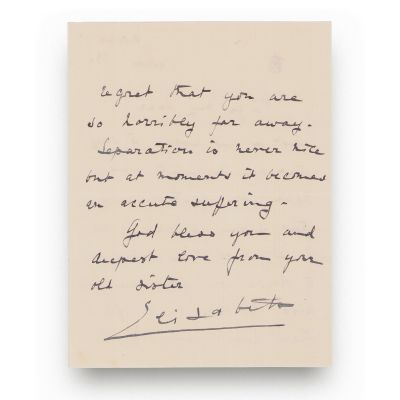 regret that you are
so horribly far away.
Separation is never nice
but at moments it becomes
an accute suffering.
God bless you and
deepest love from your
old sister
Elisabeth